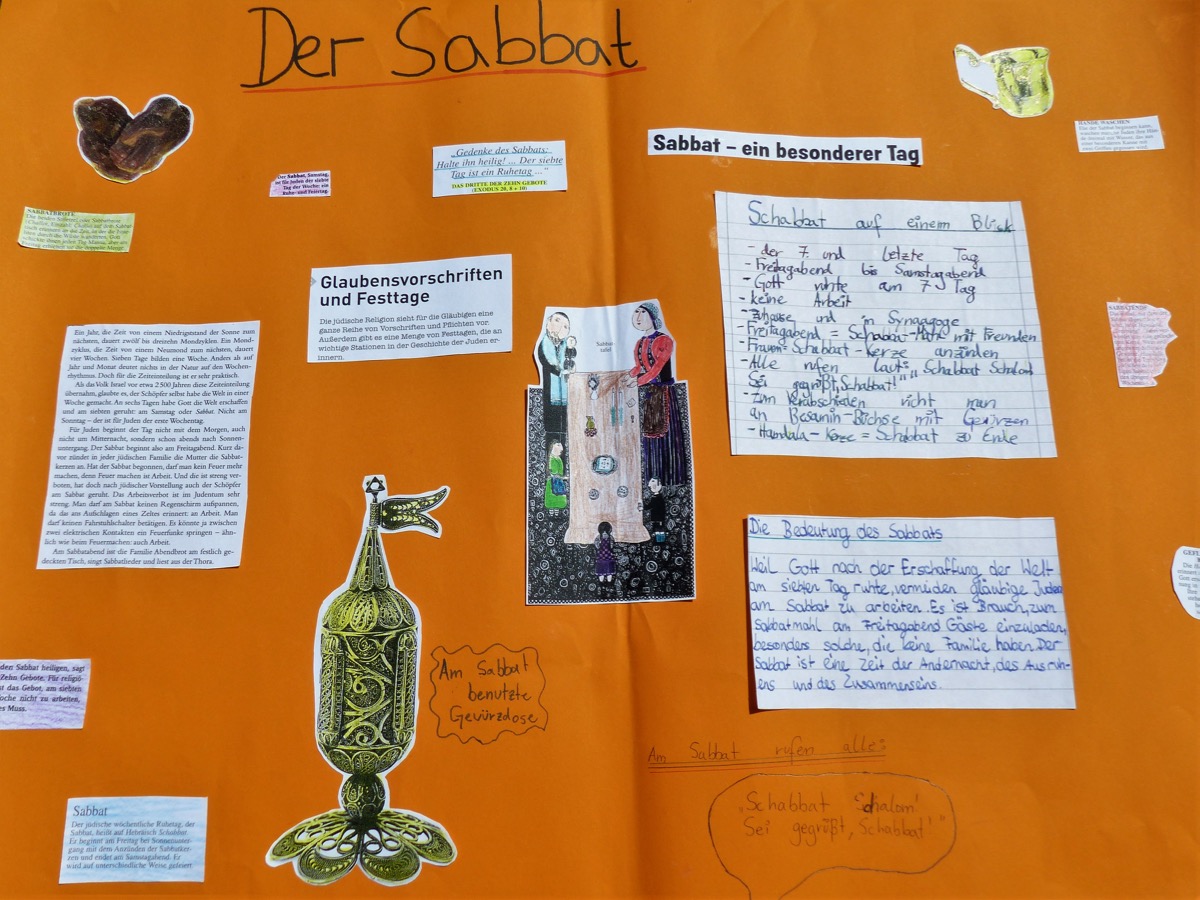 Der Sabbat
Sabbat – ein besonderer Tag
HÄNDE WASCHEN
„Gedenke des Sabbats:
Halte ihn heilig! ... Der siebte
Tag ist ein Ruhetag ..."
DAS DRITTE DER ZEHN GEBOTE
(EXODUS 20, 8 + 10)
Der Sabbat, Samstag,
ist für Juden der siebte
Tag der Woche: ein
Ruhe- und Feiertag.
SABBATBROTE
Glaubensvorschriften
und Festtage
Die jüdische Religion sieht für die Gläubigen eine
ganze Reihe von Vorschriften und Pflichten vor.
Außerdem gibt es eine Menge von Festtagen, die an
wichtige Stationen in der Geschichte der Juden er-
innern.
Schabbat auf einem Blick
- der 7. und letzte Tag
- Freitagabend bis Samstagabend
- Gott ruhte am 7 Tag
- keine Arbeit
- Zuhause und in Synagoge
- Freitagabend = Schabbat-Mahl mit Freunden
- Frauen = Schabbat kerze anzünden
- Alle rufen laut: „Schabbat Schalom
Sei gegrüßt, Schabbat!"
- Zum Verabschieden richt man
an Besamin-Büchse mit Gewürzen
- Handala-Kerze = Schabbat zu Ende
Ein Jahr, die Zeit von einem Niedrigstand der Sonne zum
nächsten, dauert zwölf bis dreizehn Mondzyklen. Ein Mond-
zyklus, die Zeit von einem Neumond zum nächsten, dauert
vier Wochen. Sieben Tage bilden eine Woche. Anders als auf
Jahr und Monat deutet nichts in der Natur auf den Wochen-
rhythmus. Doch für die Zeiteinteilung ist er sehr praktisch.
Als das Volk Israel vor etwa 2500 Jahren diese Zeiteinteilung
übernahm, glaubte es, der Schöpfer selbst habe die Welt in einer
Woche gemacht. An sechs Tagen habe Gott die Welt erschaffen
und am siebten geruht: am Samstag oder Sabbat. Nicht am
Sonntag – der ist für Juden der erste Wochentag.
Für Juden beginnt der Tag nicht mit dem Morgen, auch
nicht um Mitternacht, sondern schon abends nach Sonnen-
untergang. Der Sabbat beginnt also am Freitagabend. Kurz da-
vor zündet in jeder jüdischen Familie die Mutter die Sabbat-
kerzen an. Hat der Sabbat begonnen, darf man kein Feuer mehr
machen, denn Feuer machen ist Arbeit. Und die ist streng ver-
boten, hat doch nach jüdischer Vorstellung auch der Schöpfer
am Sabbat geruht. Das Arbeitsverbot ist im Judentum sehr
streng. Man darf am Sabbat keinen Regenschirm aufspannen,
da das ans Aufschlagen eines Zeltes erinnert: an Arbeit. Man
darf keinen Fahrstuhlschalter betätigen. Es könnte ja zwischen
zwei elektrischen Kontakten ein Feuerfunke springen – ähn-
lich wie beim Feuermachen: auch Arbeit.
Am Sabbatabend ist die Familie Abendbrot am festlich ge-
deckten Tisch, singt Sabbatlieder und liest aus der Thora.
Die Bedeutung des Sabbats
Weil Gott nach der Erschaffung der Welt
am siebten Tag ruhte, vermeiden gläubige Juden
am Sabbat zu arbeiten. Es ist Brauch, zum
Sabbatmahl am Freitagabend Gäste einzuladen,
besonders solche, die keine Familie haben. Der
Sabbat ist eine Zeit der Andernacht, des Ausruh-
ens und des Zusammenseins.
den Sabbat heiligen, sagt
Zehn Gebote. Für religiö-
st das Gebot, am siebten
oche nicht zu arbeiten,
es Muss.
Am Sabbat
benutzte
Gewürzdose
Am Sabbat rufen alle:
„Schabbat Schalom!
Sei gegrüßt, Schabbat!"
Sabbat
Der jüdische wöchentliche Ruhetag, der
Sabbat, heißt auf Hebräisch Schabbat.
Er beginnt am Freitag bei Sonnenunter-
gang mit dem Anzünden der Sabbatker-
zen und endet am Samstagabend. Er
wird auf unterschiedliche Weise gefeiert.